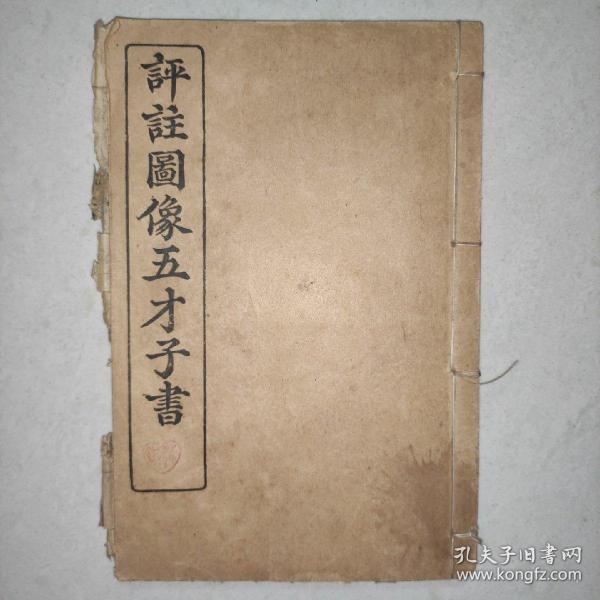 評註圖像五才子書
孔夫子旧書网
www.kongfz.com